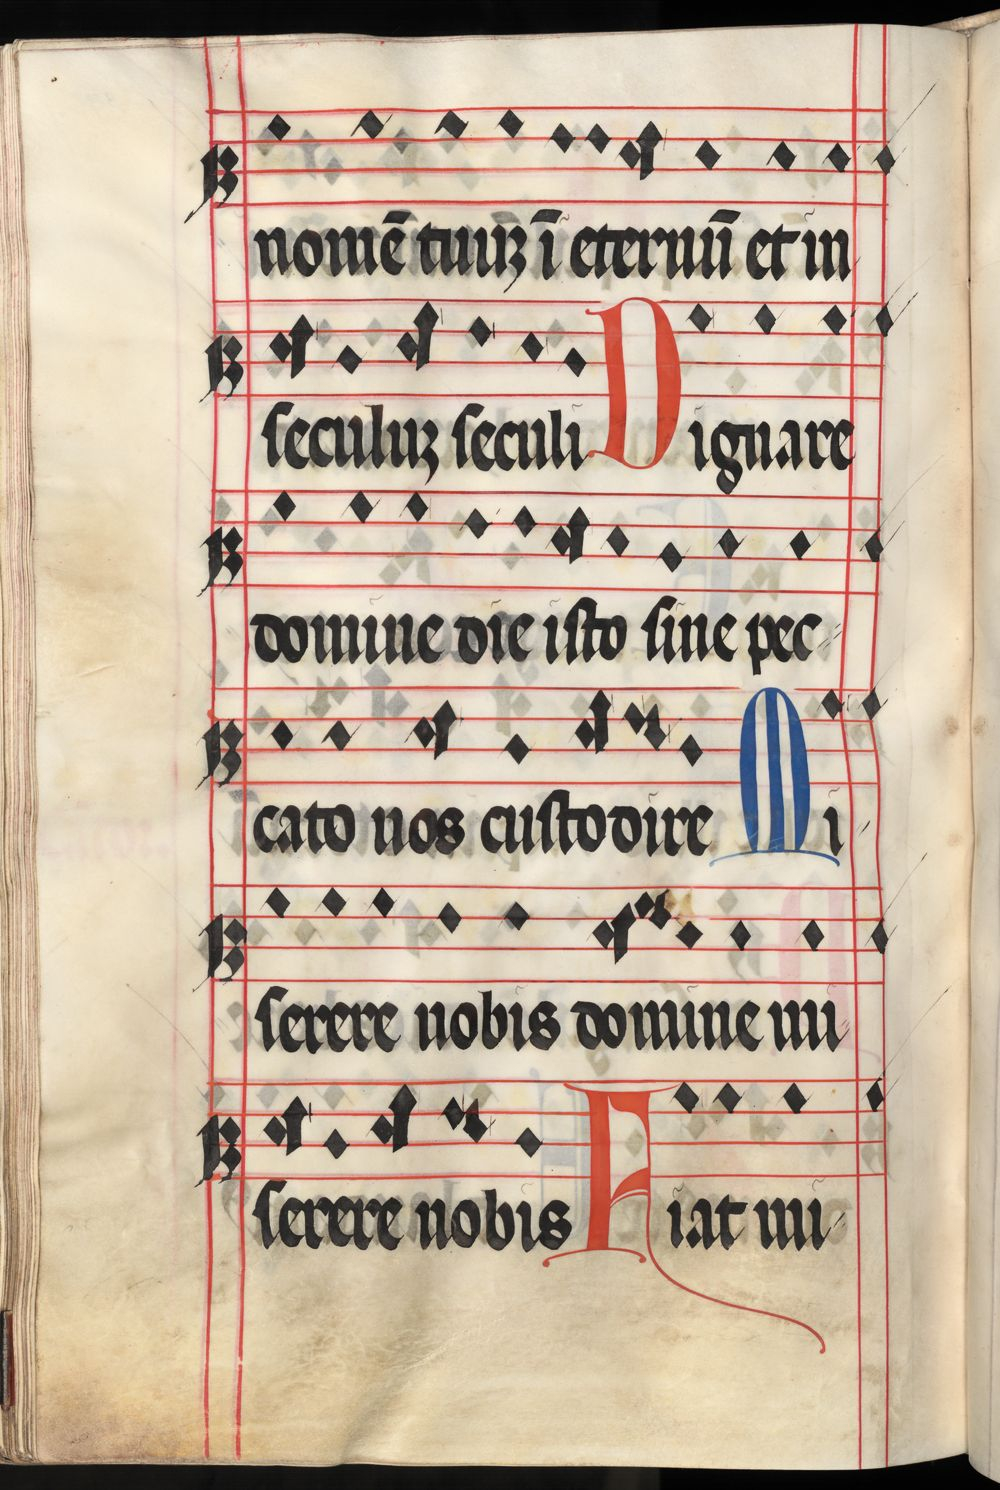 nomē tuuꝫ ī eternū et in
seculuꝫ seculi Dignare
domine die isto sine pec⸗
cato nos custodire Mi⸗
serere nobis domine mi⸗
serere nobis Fiat mi⸗